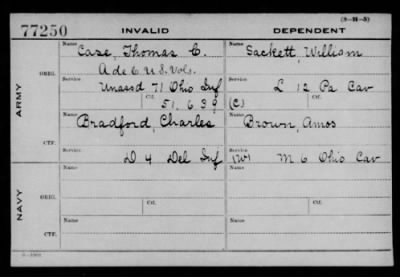 (3-H-5)
77250 INVALID DEPENDENT
Name Name
Case, Thomas C. Sackett, William
A de C U.S. Vols.
ARMY
ORIG. Service Service
Unassd 71 Ohio Inf L 12 Pa Cav
Ctf. 51,639 Ctf. (C)
Name Name
Bradford, Charles Brown, Amos
CTF. Service Service
D 4 Del Inf (W) M 6 Ohio Cav
NAVY
Name Name
ORIG.
Ctf. Ctf.
Name Name
CTF.